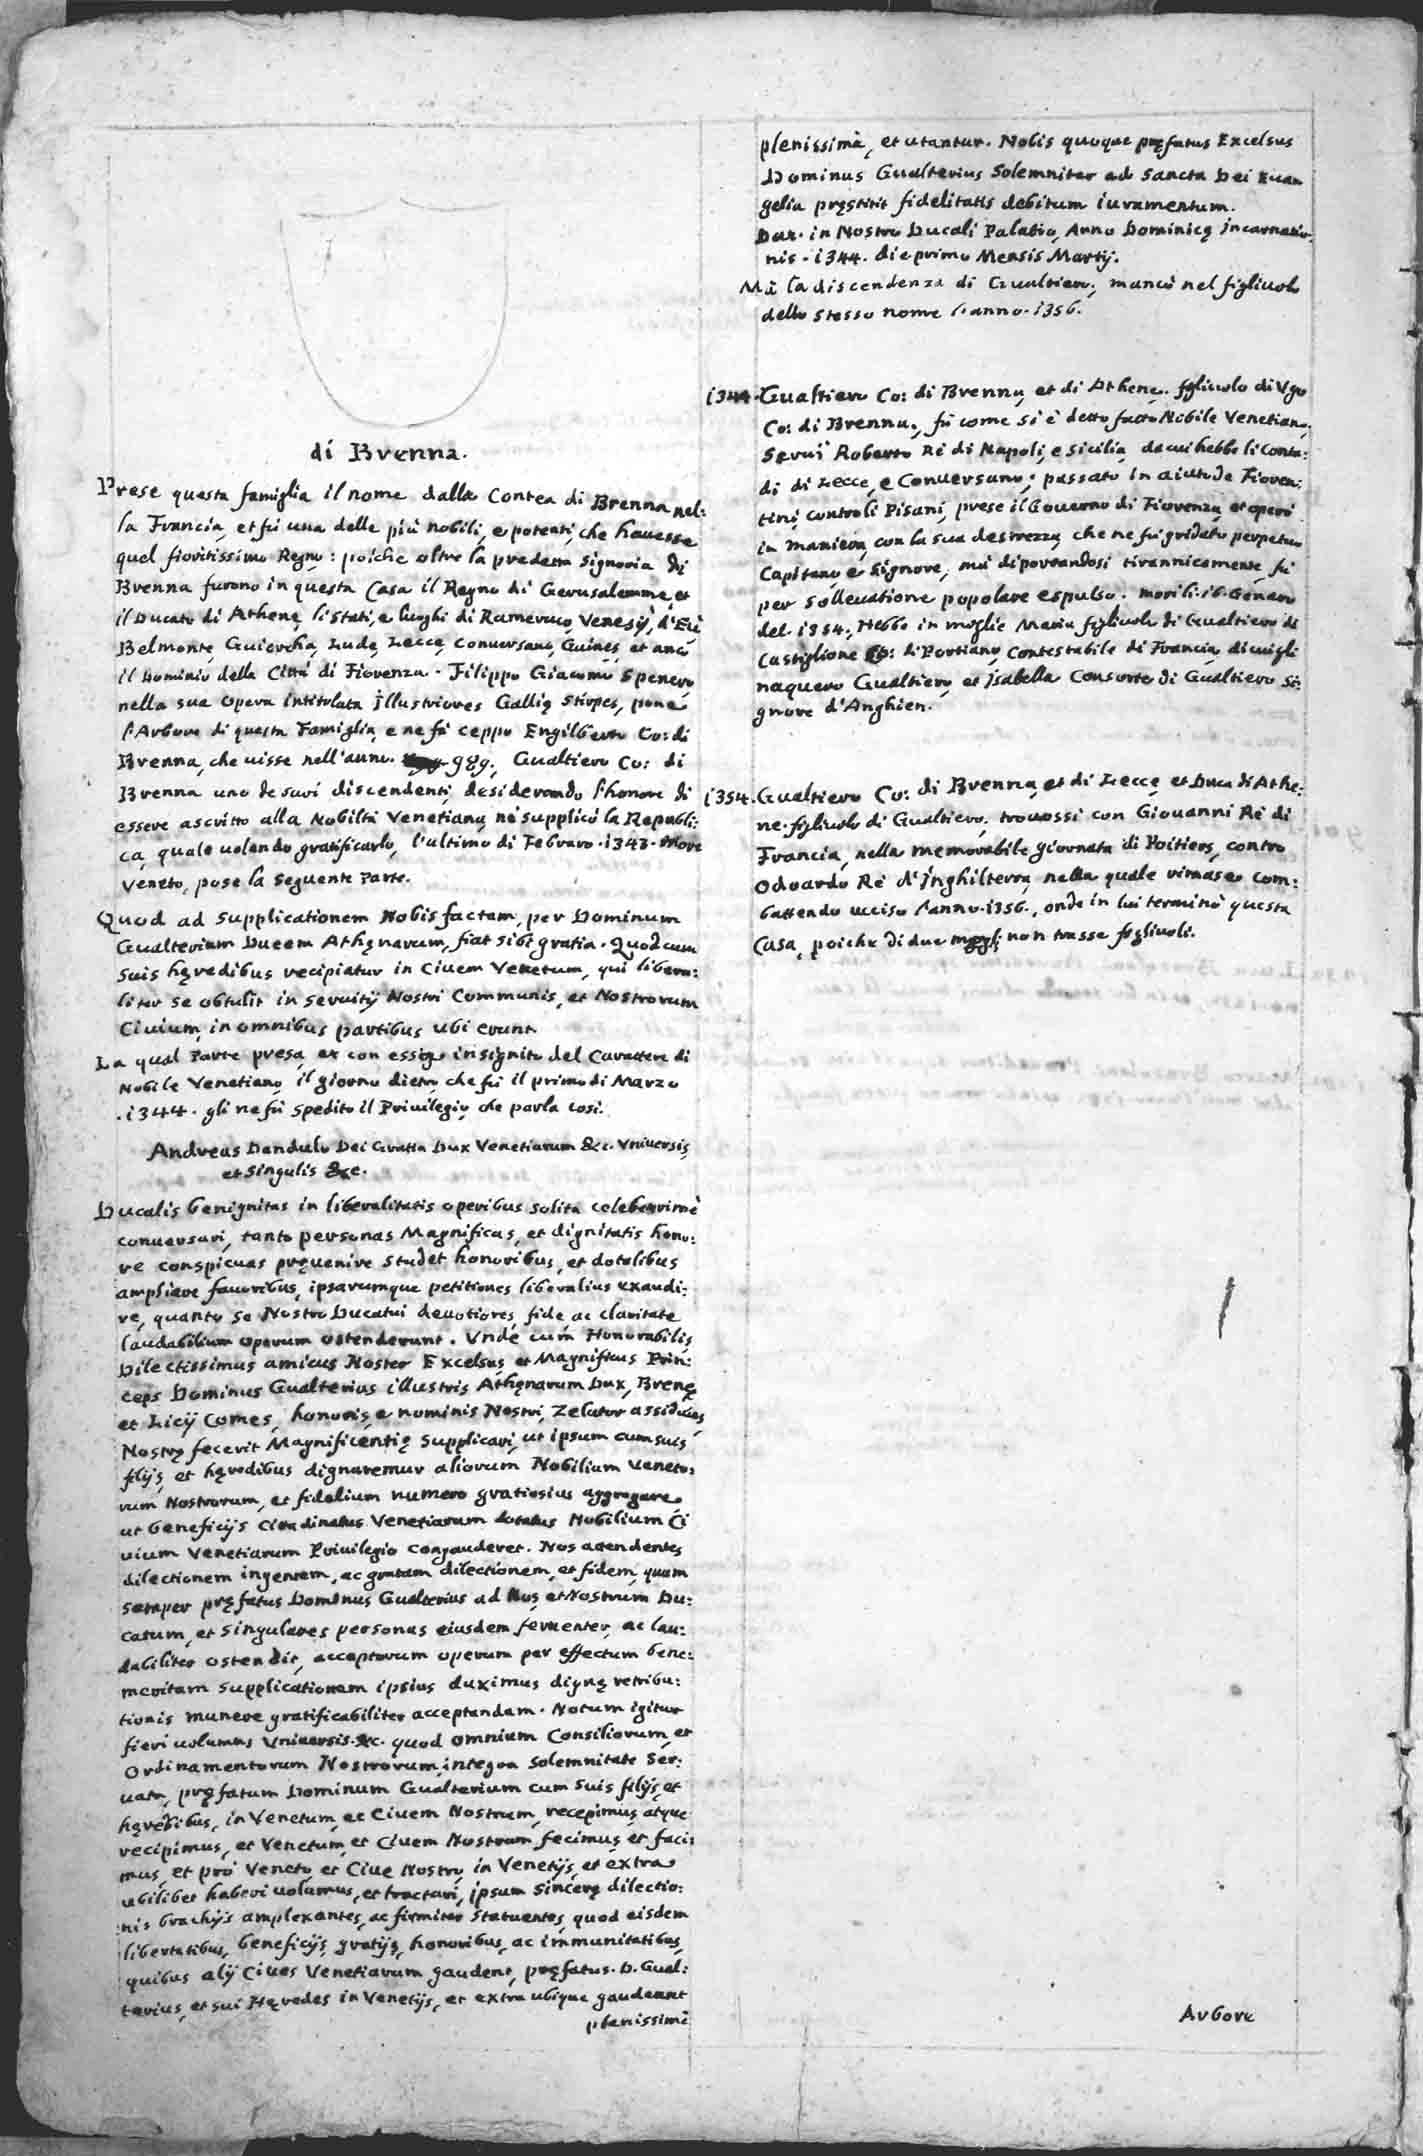 di Brenna.
Prese questa famiglia il nome dalla Contea di Brenna nel:
la Francia, et fù una delle più nobili, e potenti, che hauesse
quel fioritissimo Regno: poiche oltre la predetta Signoria di
Brenna furono in questa Casa il Regno di Gerusalemme, et
il Ducato di Athene, li stati, e luoghi di Rameruco, Venesÿ, d'Eù
Belmonte, Guiercha, Lude, Lecce, Conuersano, Guines, et anco
il Dominio della Città di Fiorenza. Filippo Giacomo Spenero
nella sua opera intitulata Jllustriores Gallię Stirpes, pone
l'Arbore di questa Famiglia, e ne fà ceppo Engilberto Co: di
Brenna, che uisse nell'anno. 989., Gualtiero Co: di
Brenna uno de suoi discendenti, desiderando l'honore di
essere ascritto alla Nobiltà Venetiana, nè supplicò la Republi:
ca, quale uolendo gratificarlo, l'ultimo di Febraro. 1343. More
Veneto, pose la seguente Parte.
Quod ad supplicationem Nobis factam, per Dominum
Gualterium Ducem Athęnarum, fiat sibi gratia. Quod cum
suis hęredibus recipiatur in Ciuem Venetum, qui libera:
liter se obtulit in seruitÿ Nostri Communis, et Nostrorum
Ciuium, in omnibus partibus ubi erunt
La qual Parte presa, et con essa insignito del Carattere di
Nobile Venetiano, il giorno dietro, che fù il primo di Marzo
.1344. gli ne fù spedito il Priuilegio, che parla così.
Andreas Dandulo Dei Gratia Dux Venetiarum &c. Vniuersis,
et Singulis &c.
Ducalis benignitas in liberalitatis operibus solita celeberrimè
conuersari, tanto personas Magnificas, et dignitatis hono:
re conspicuas pręuenire studet honoribus, et dotalibus
ampliare fauoribus, ipsarumque petitiones liberalius exaudi:
re, quanto se Nostro Ducatui deuotiores, fide ac claritate
laudabilium operum ostenderunt. Vnde cum Honorabilis,
Dilectissimus amicus Noster Excelsus, et Magnificus Prin:
ceps Dominus Gualterius illustris Athęnarum Dux, Brenę,
et Licÿ Comes, honoris, e nominis Nostri, Zelator assiduus,
Nostrę fecerit Magnificentię supplicari, ut ipsum cum suis
filÿs, et hęredibus dignaremur aliorum Nobilium Veneto:
rum Nostrorum, et fidelium numero gratiosius aggregare,
ut beneficÿs Citadinatus Venetiarum dotatus Nobilium Ci
uium Venetiarum Priuilegio congauderet. Nos attendentes
dilectionem ingentem, ac gratam dilectionem, et fidem, quam
semper pręfatus Dominus Gualterius ad Nos, et Nostrum Du:
catum, et singulares personas eiusdem feruenter, ac lau:
dabiliter ostendit, acceptorum operum per effectum bene:
meritam supplicationem ipsius duximus dignę retribu:
tionis munere gratificabiliter acceptandam. Notum igitur
fieri uolumus Vniuersis. &c. quod omnium Consiliorum, et
Ordinamentorum Nostrorum, integra solemnitate ser:
uata, pręfatum Dominum Gualterium cum suis filÿs, et
hęredibus, in Venetum, ac Ciuem Nostrum, recepimus, atque
recipimus, et Venetum, et Ciuem Nostrum fecimus, et faci:
mus, et pro Veneto, et Ciue Nostro, in Venetÿs, et extra
ubilibet haberi uolumus, et tractari, ipsum sincerę dilectio:
nis brachÿs amplexantes, ac firmiter statuentes, quod eisdem
libertatibus, beneficÿs, gratÿs, honoribus, ac immunitatibus,
quibus alÿ Ciues Venetiarum gaudent, pręfatus. D. Gual:
terius, et sui Hęredes in Venetÿs, et extra ubique gaudeant
plenissimè
plenissimè, et utantur. Nobis quoque pręfatus Excelsus
Dominus Gualterius Solemniter ad Sancta Dei Euan
gelia pręstitit fidelitatis debitum iuramentum.
Dat. in Nostro Ducali Palatio, Anno Dominicę Jncarnatio:
nis. 1344. die primo Mensis Martÿ.
Mà la discendenza di Gualtiero, mancò nel figliuolo
dello stesso nome l'anno. 1356.
1344. Gualtiero Co: di Brenna, et di Athene. figliuolo di Vgo
Co: di Brenna, fù come si è detto fatto Nobile Venetiano.
Seruì Roberto Rè di Napoli, e Sicilia, da cui hebbe li Conta:
di di Lecce, e Conuersano, passato in aiuto de Fioren:
tini, contro li Pisani, prese il Gouerno di Fiorenza, et operò
in maniera, con la sua destrezza, che ne fù gridato perpetuo
Capitano, e Signore, mà diportandosi tirannicamente, fù
per solleuatione popolare espulso. morì li. 16. Genaro
del. 1354., Hebbe in moglie Maria figliuola di Gualtiero di
Castiglione Co: di Portiano, Contestabile di Francia, di cui gli
naquero Gualtiero, et Jsabella Consorte di Gualtiero Si:
gnore d'Anghien.
1354. Gualtiero Co: di Brenna, et di Lecce, et Duca di Athe:
ne. figliuolo di Gualtiero, trouossi con Giouanni Rè di
Francia, nella memorabile giornata di Poitiers, contro
Odoardo Rè d'Jnghilterra, nella quale rimase com:
battendo ucciso l'anno. 1356., onde in lui terminò questa
Casa, poiche di due mogli non trasse figliuoli.
Arbore